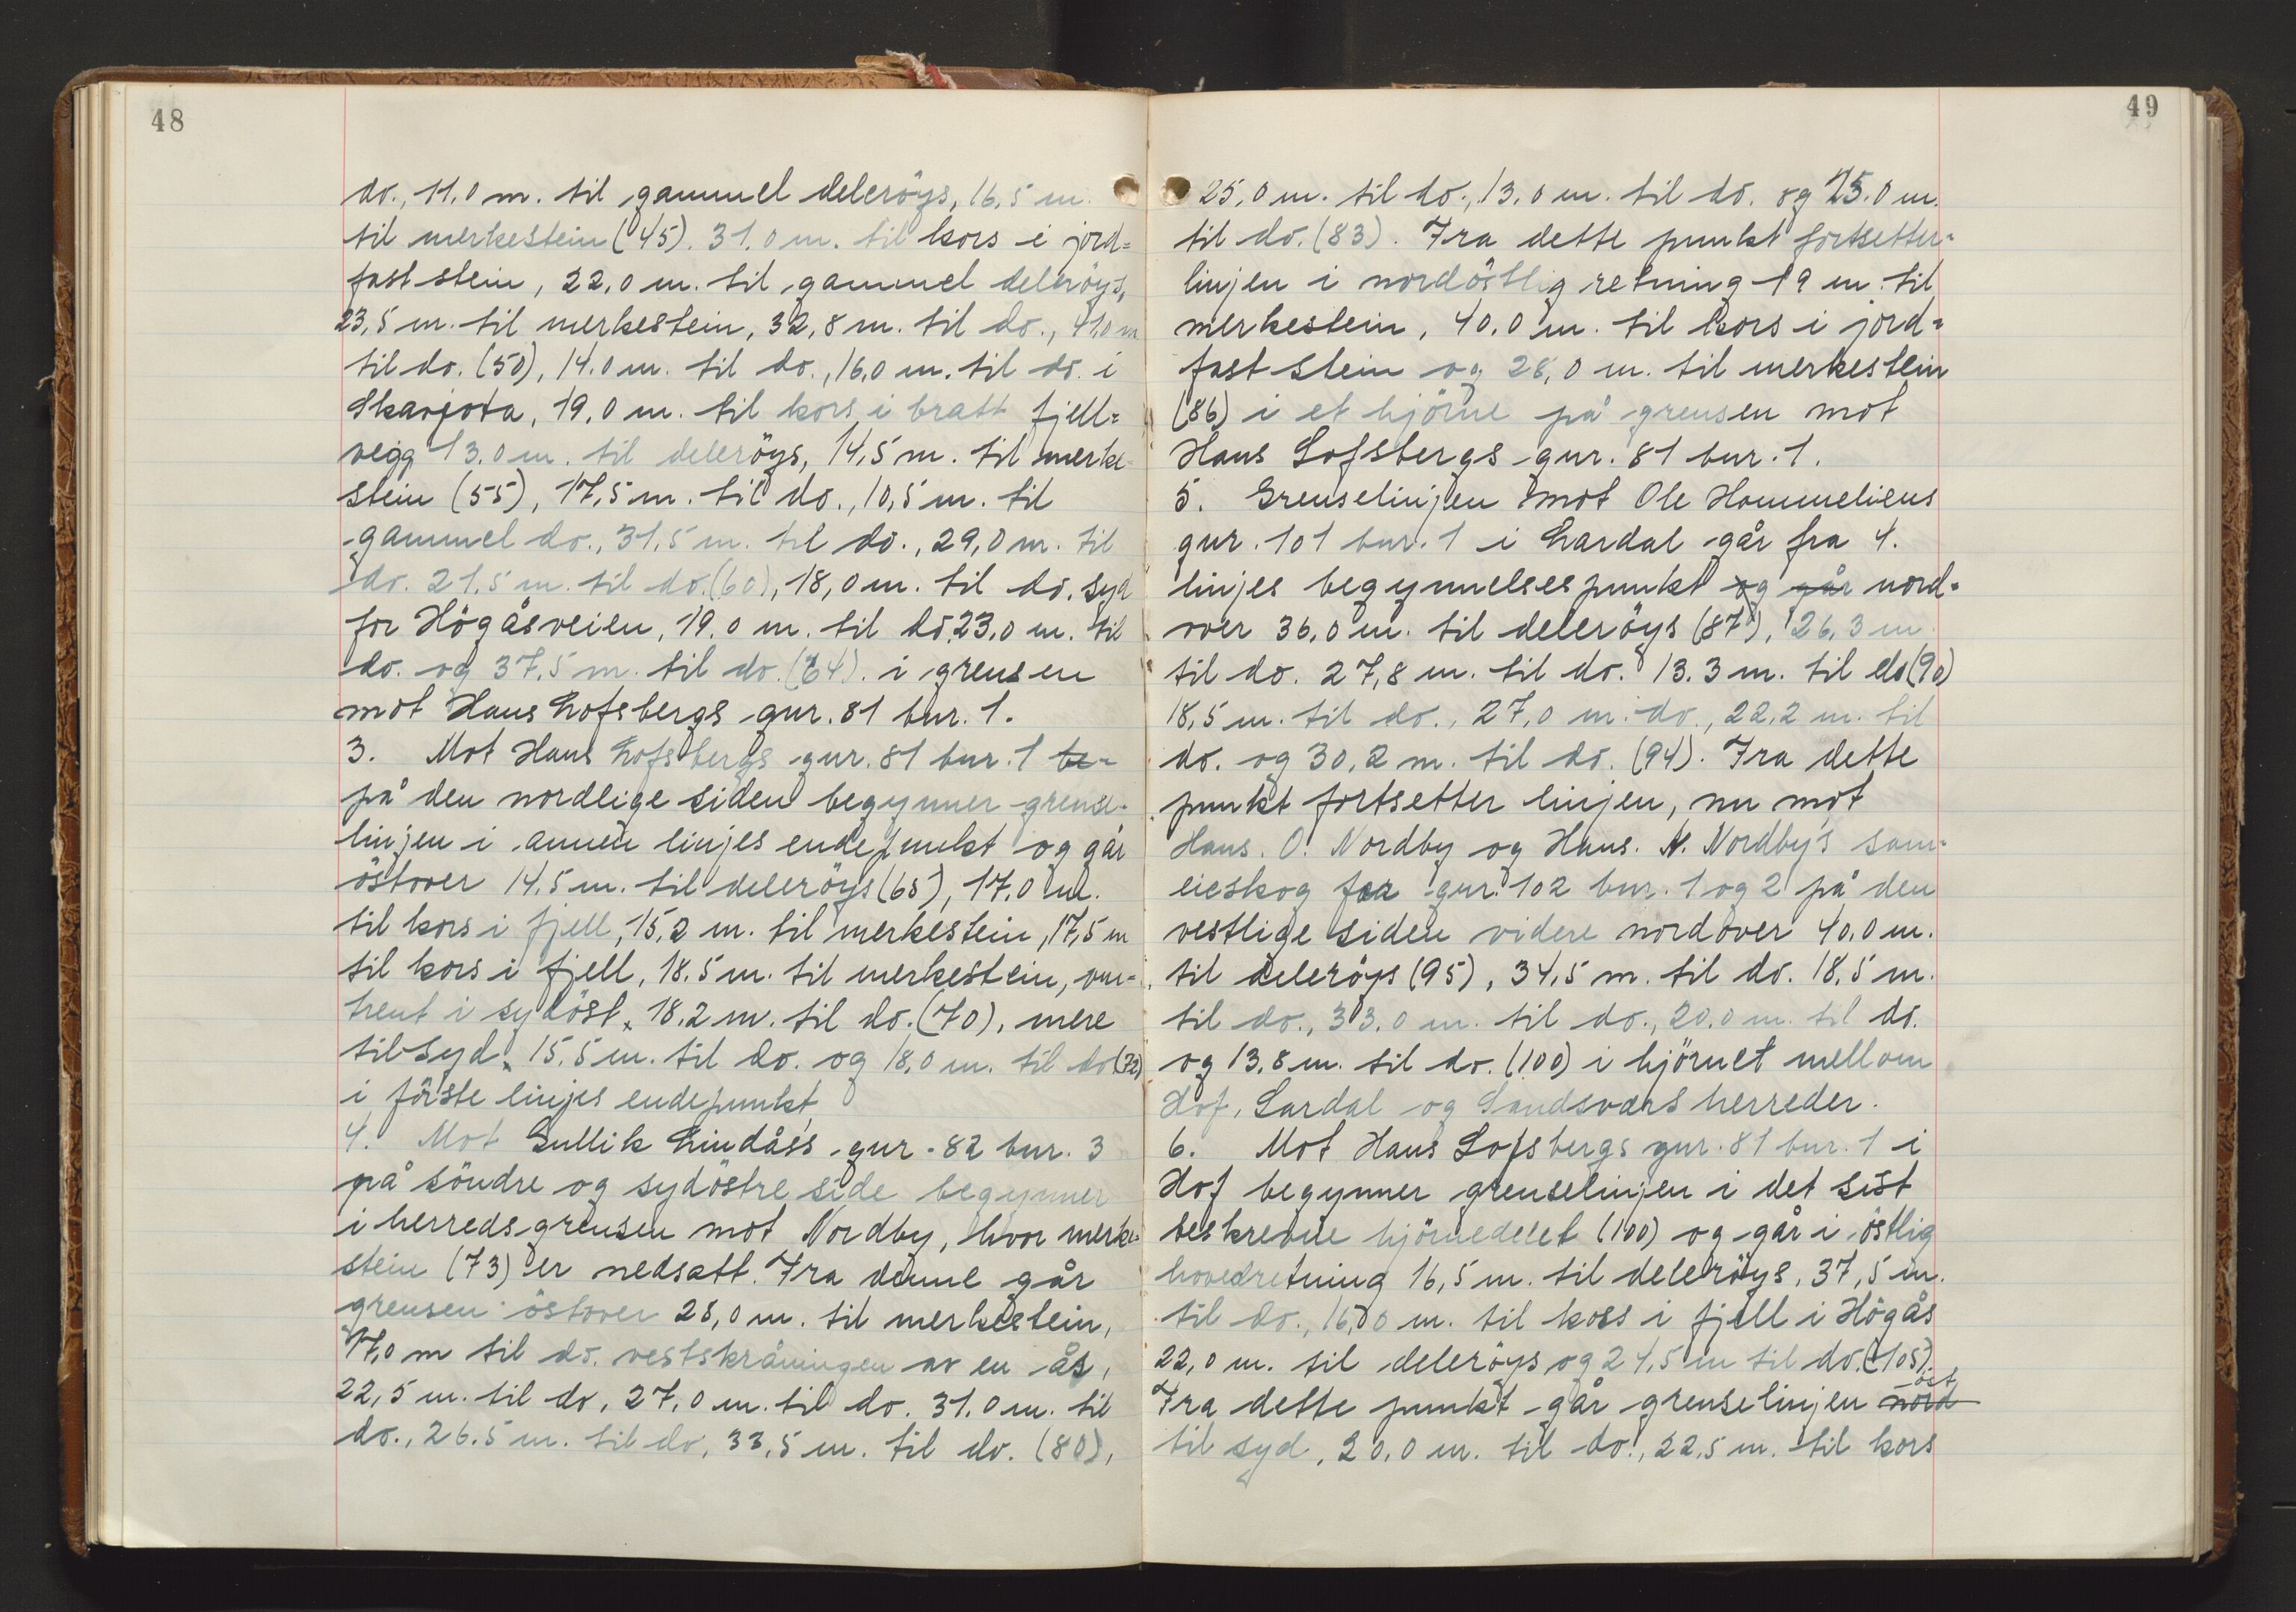 48
do., 11,0 m. til gammel deleröys, 16,5 m.
til merkestein (45). 31,0 m. til kors i jord=
fast stein, 22,0 m. til gammel deleröys,
23,5 m. til merkestein, 32,8 m. til do., 41,0 m
til do. (50), 14.0 m. til do., 16,0 m. til do. i
19,0 m. til kors i bratt fjell=
vegg 13,0 m. til deleröys, 14,5 m. til merke-
stein (55), 17,5 m. til do., 10,5 m. til
gammel do., 31,5 m. til do., 29,0 m. til
do. 21,5 m. til do. (60), 18,0 m. til do. syd
for Högåsveien, 19,0 m. til do, 23,0 m. til
do. og 37,5 m. til do. (64). i grensen
mot Hans Lofsbergs gnr. 81 bnr. 1.
3. Mot Hans Lofsbergs gnr. 81 bnr. 1 be-
på den nordlige siden begynner grense-
linjen i annen linjes endepunkt og går
östover 14,5 m. til deleröys (65), 17,0 m.
til kors i fjell, 15,2 m. til merkestein, 17,5 m
til kors i fjell, 18,5 m. til merkestein, om-
trent i sydöst, 18,2 m. til do. (70), mere
til syd, 15,5 m. til do. og 18,0 m. til do (72)
i förste linjes endepunkt,
4. Mot Gullik Lindås's gnr. 82 bnr. 3
på söndre og sydöstre side begynner
i herredsgrensen mot Nordby, hvor merke-
stein (73) er nedsatt. Fra denne går
grensen östover 28,0 m. til merkestein,
17,0 m til do. vestskråningen av en ås,
22,5 m. til do, 27,0 m. til do. 31.0 m. til
do., 26.5 m. til do, 33,5 m. til do. (80),
49
25,0 m. til do., 13,0 m. til do. og 25.0 m.
til do. (83). Fra dette punkt fortsetter
linjen i nordöstlig retning 19 m. til
merkestein, 40,0 m. til kors i jord=
fast stein og 28,0 m. til merkestein
(86) i et hjörne på grensen mot
Hans Lofsbergs gnr. 81 bnr. 1.
5. Grenselinjen mot Ole Hommeliens
gnr. 101 bnr. 1 i Lardal går fra 4.
linjes begynnelsespunkt og går nord=
over 36,0 m. til deleröys (87), 26,3 m
til do. 27,8 m. til do. 13.3 m. til do (90)
18,5 m. til do., 27,0 m. do., 22,2 m. til
do. og 30,2 m. til do. (94). Fra dette
punkt fortsetter linjen, nu mot
Hans. O. Nordby og Hans. N. Nordby's sam-
eieskog for gnr. 102 bnr. 1 og 2 på den
vestlige siden videre nordover 40,0 m.
til deleröys (95), 34,5 m. til do. 18,5 m.
til do., 33.0 m. til do., 20,0 m. til do.
og 13,8 m. til do. (100) i hjörnet mellom
Hof, Lardal og Sandsværs herreder.
6. Mot Hans Lofsbergs gnr. 81 bnr. 1 i
Hof begynner grenselinjen i det sist
beskrevne hjörnedelet (100) og går i östlig
hovedretning 16,5 m. til deleröys, 37,5 m.
til do., 16,00 m. til koss i fjell i Högås
22,0 m. til deleröys og 24,5 m til do. (105).
Fra dette punkt går grenselinjen nord öst
til syd, 20,0 m. til do., 22,5 m. til kors